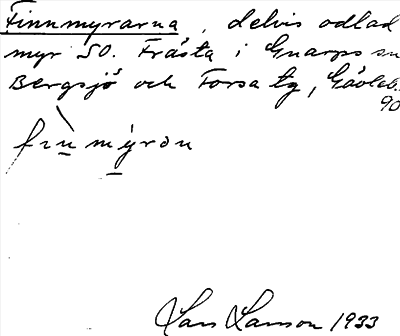 Finnmyrarna, delvis odlad
myr SO. Frästa i Gnarps sn
Bergsjö och Forsa tg, Gävleb.
90
finmyrọn
Lars Larsson 1933